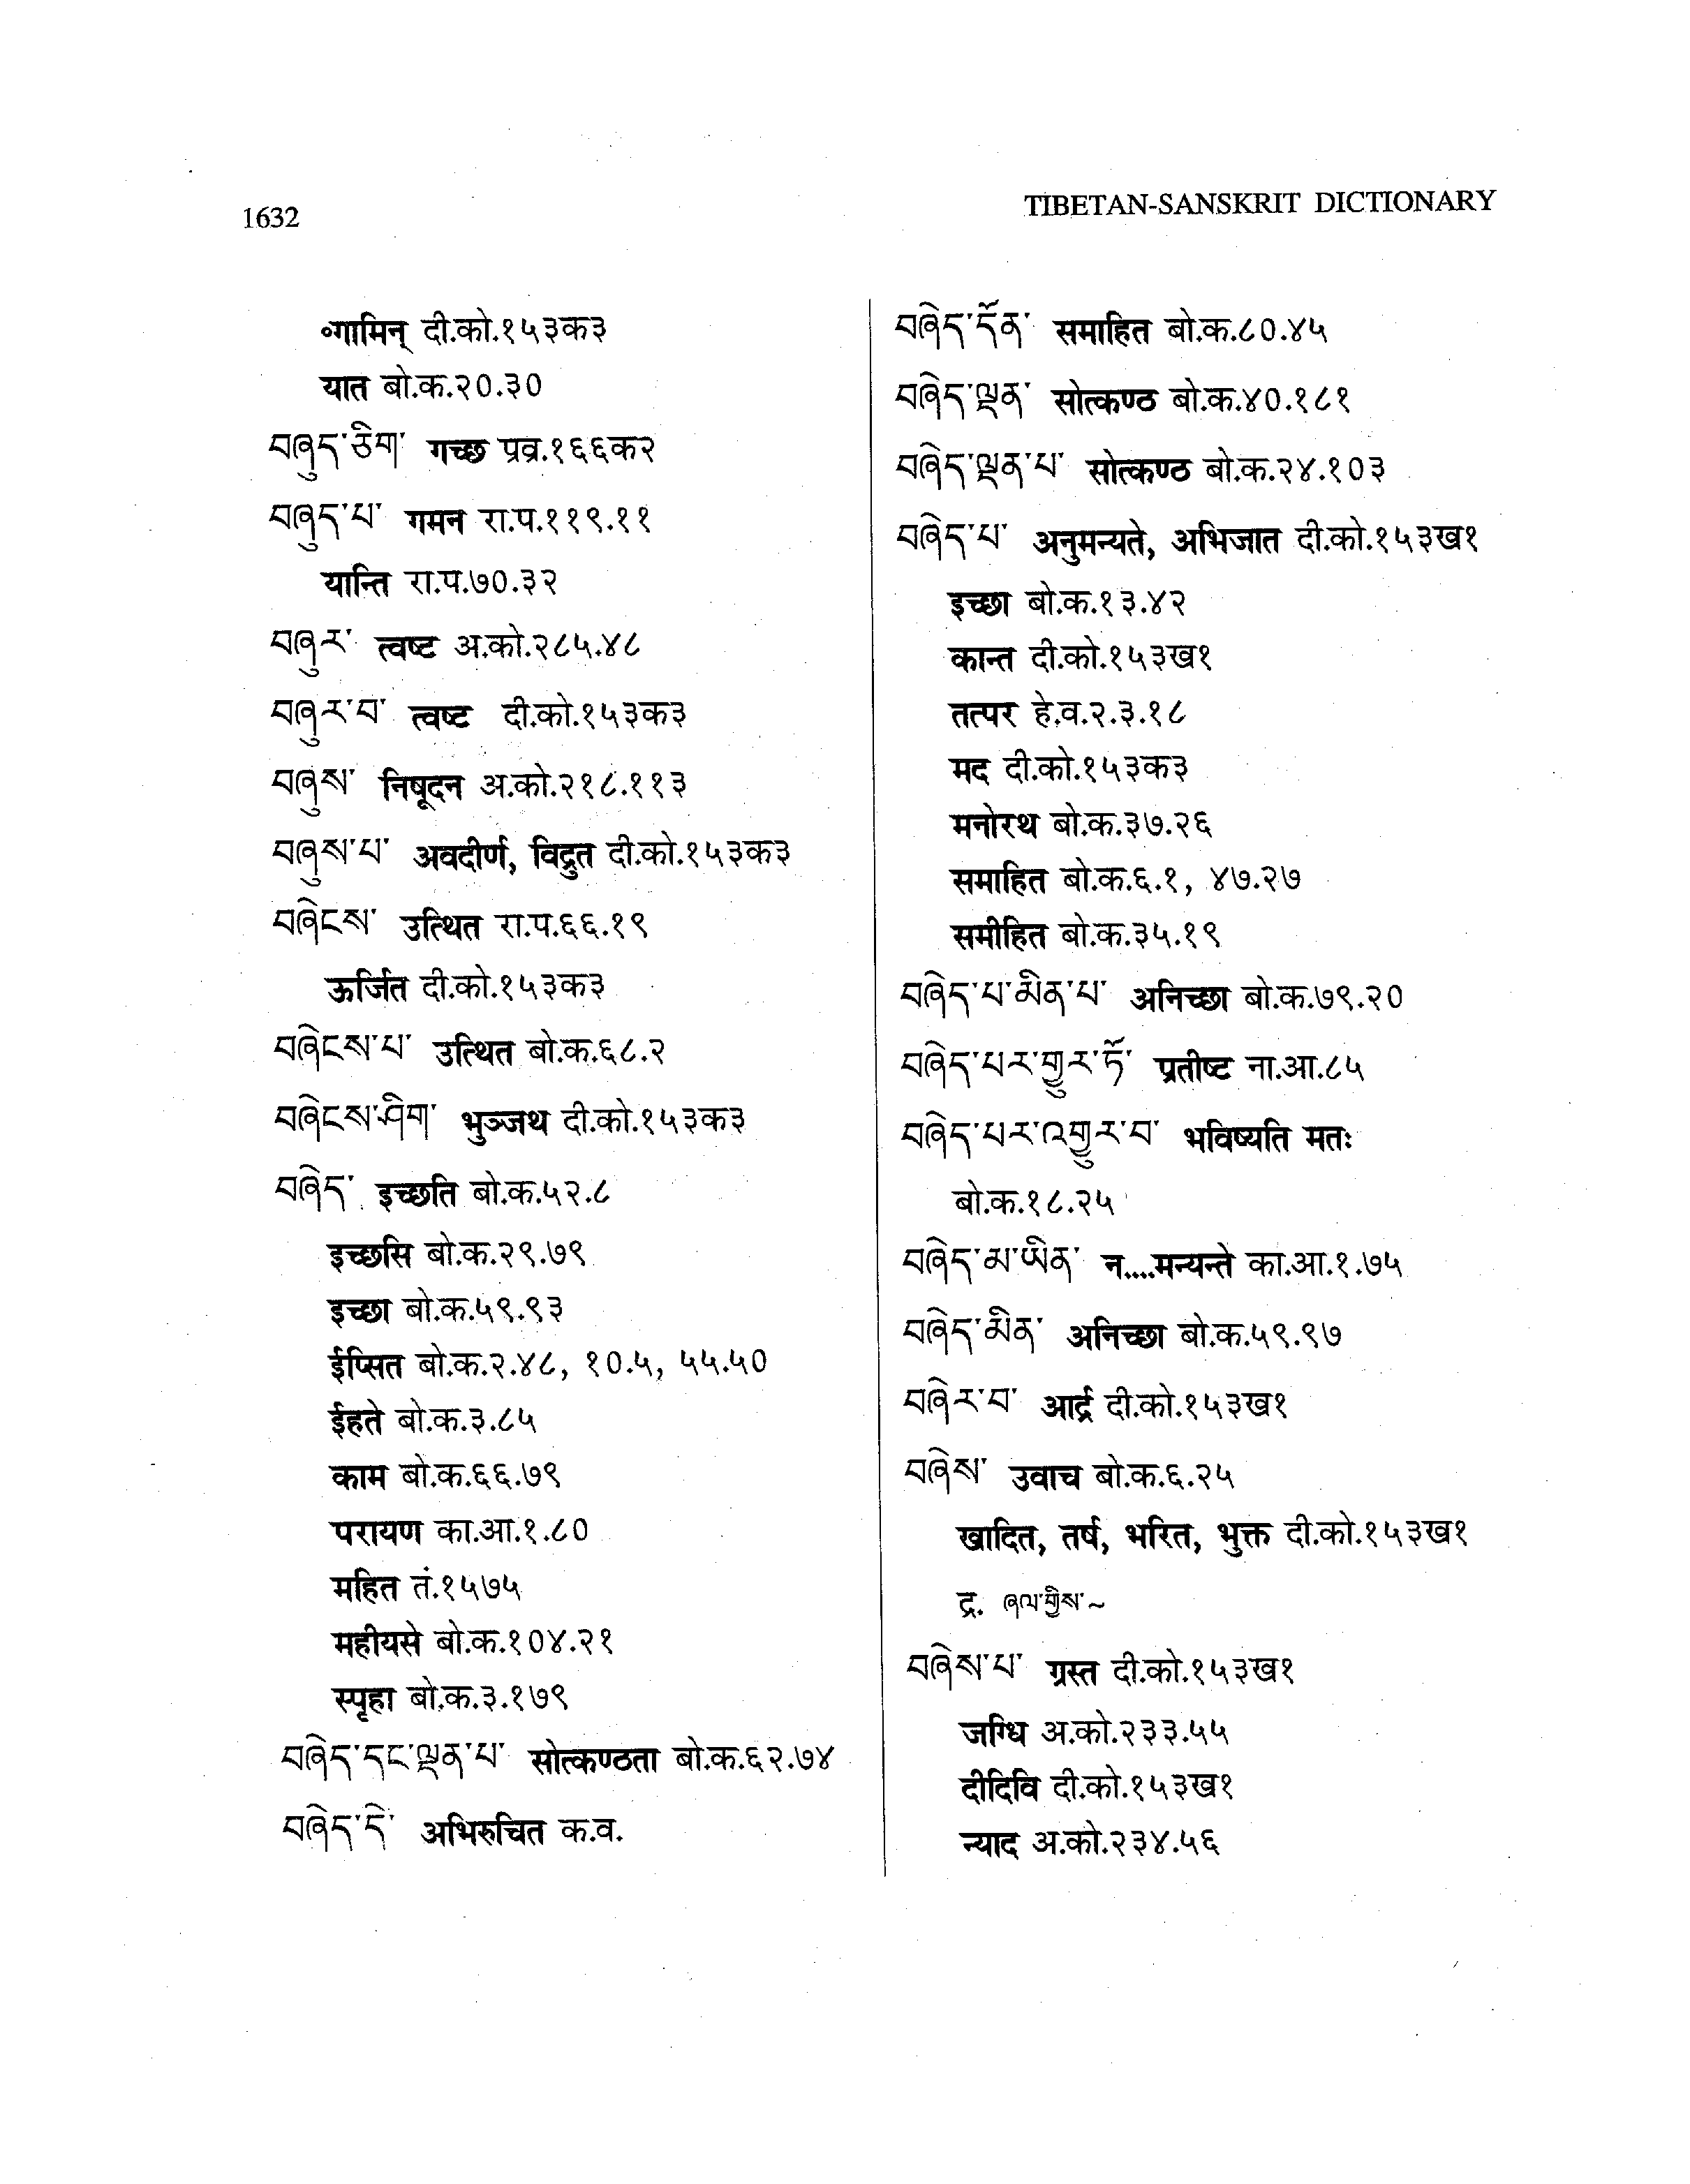 1632
TIBETAN-SANSKRIT DICTIONARY
॰गामिन् दी.को.१५३क३
यात बो.क.२०.३०
བཞུད་ཅིག་ गच्छ प्रव्र.१६६क२
བཞུད་པ་ गमन रा.प.११९.११
यान्ति रा.प.७०.३२
བཞུར་ त्वष्ट अ.को.२८५.४८
བཞུར་བ་ त्वष्ट दी.को.१५३क३
བཞུས་ निषूदन अ.को.२१८.११३
བཞུས་པ་ अवदीर्ण, विद्रुत दी.को.१५३क३
བཞེངས་ उत्थित रा.प.६६.१९
ऊर्जित दी.को.१५३क३
བཞེངས་པ་ उत्थित बो.क.६८.२
བཞེངས་ཤིག་ भुञ्जथ दी.को.१५३क३
བཞེད་ इच्छति बो.क.५२.८
इच्छसि बो.क.२९.७९
इच्छा बो.क.५९.९३
ईप्सित बो.क.२.४८, १०.५, ५५.५०
ईहते बो.क.३.८५
काम बो.क.६६.७९
परायण का.आ.१.८०
महित तं.१५७५
महीयसे बो.क.१०४.२१
स्पृहा बो.क.३.१७९
བཞེད་དང་ལྡན་པ་ सोत्कण्ठता बो.क.६२.७४
བཞེད་དེ་ अभिरुचित क.व.
བཞེད་དོན་ समाहित बो.क.८०.४५
བཞེད་ལྡན་ सोत्कण्ठ बो.क.४०.१८१
བཞེད་ལྡན་པ་ सोत्कण्ठ बो.क.२४.१०३
བཞེད་པ་ अनुमन्यते, अभिजात दी.को.१५३ख१
इच्छा बो.क.१३.४२
कान्त दी.को.१५३ख१
तत्पर हे.व.२.३.१८
मद दी.को.१५३क३
मनोरथ बो.क.३७.२६
समाहित बो.क.६.१, ४७.२७
समीहित बो.क.३५.१९
བཞེད་པ་མིན་པ་ अनिच्छा बो.क.७९.२०
བཞེད་པར་གྱུར་ཏོ་ प्रतीष्ट ना.आ.८५
བཞེད་པར་འགྱུར་བ་ भविष्यति मतः
बो.क.१८.२५
བཞེད་མ་ཡིན་ न....मन्यन्ते का.आ.१.७५
བཞེད་མིན་ अनिच्छा बो.क.५९.९७
བཞེར་བ་ आर्द्र दी.को.१५३ख१
བཞེས་ उवाच बो.क.६.२५
खादित, तर्ष, भरित, भुक्त दी.को.१५३ख१
द्र. ཞལ་གྱིས་~
བཞེས་པ་ ग्रस्त दी.को.१५३ख१
जग्धि अ.को.२३३.५५
दीदिवि दी.को.१५३ख१
न्याद अ.को.२३४.५६